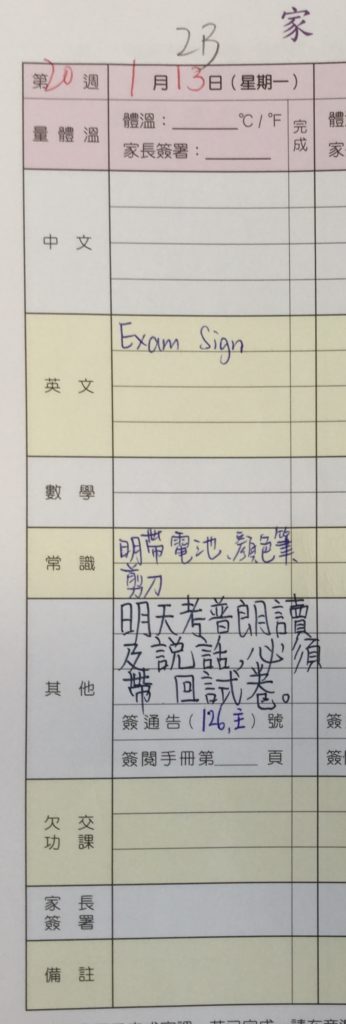 2B
家
第20週
1月13日(星期一)
量體溫
體溫:______℃/℉
家長簽署:______
完成
體
家
中文
英文
Exam Sign
數學
常識
明帶電池、顏色筆、
剪刀
其他
明天考普朗讀
及説話,必須
帶回試卷。
簽通告(126,主)號
簽
簽閱手冊第____頁
簽
欠交
功課
家長
簽署
備註